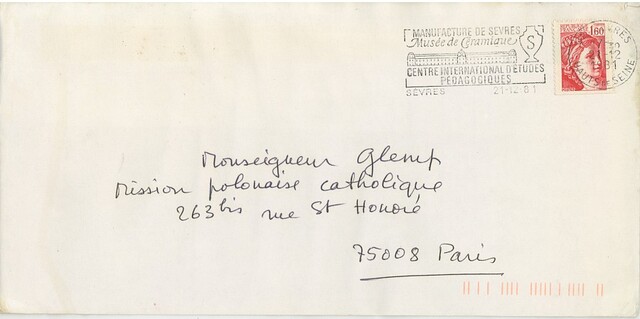 MANUFACTURE DE SEVRES
Musée de Céramique
S
CENTRE INTERNATIONAL D'ETUDES
PEDAGOGIQUES
SEVRES 21-12-81
1,60
SEVRES
21-12
1981
HAUTS DE SEINE
Monseigneur Glemp
Mission polonaise catholique
263 bis rue St Honoré
75008 Paris